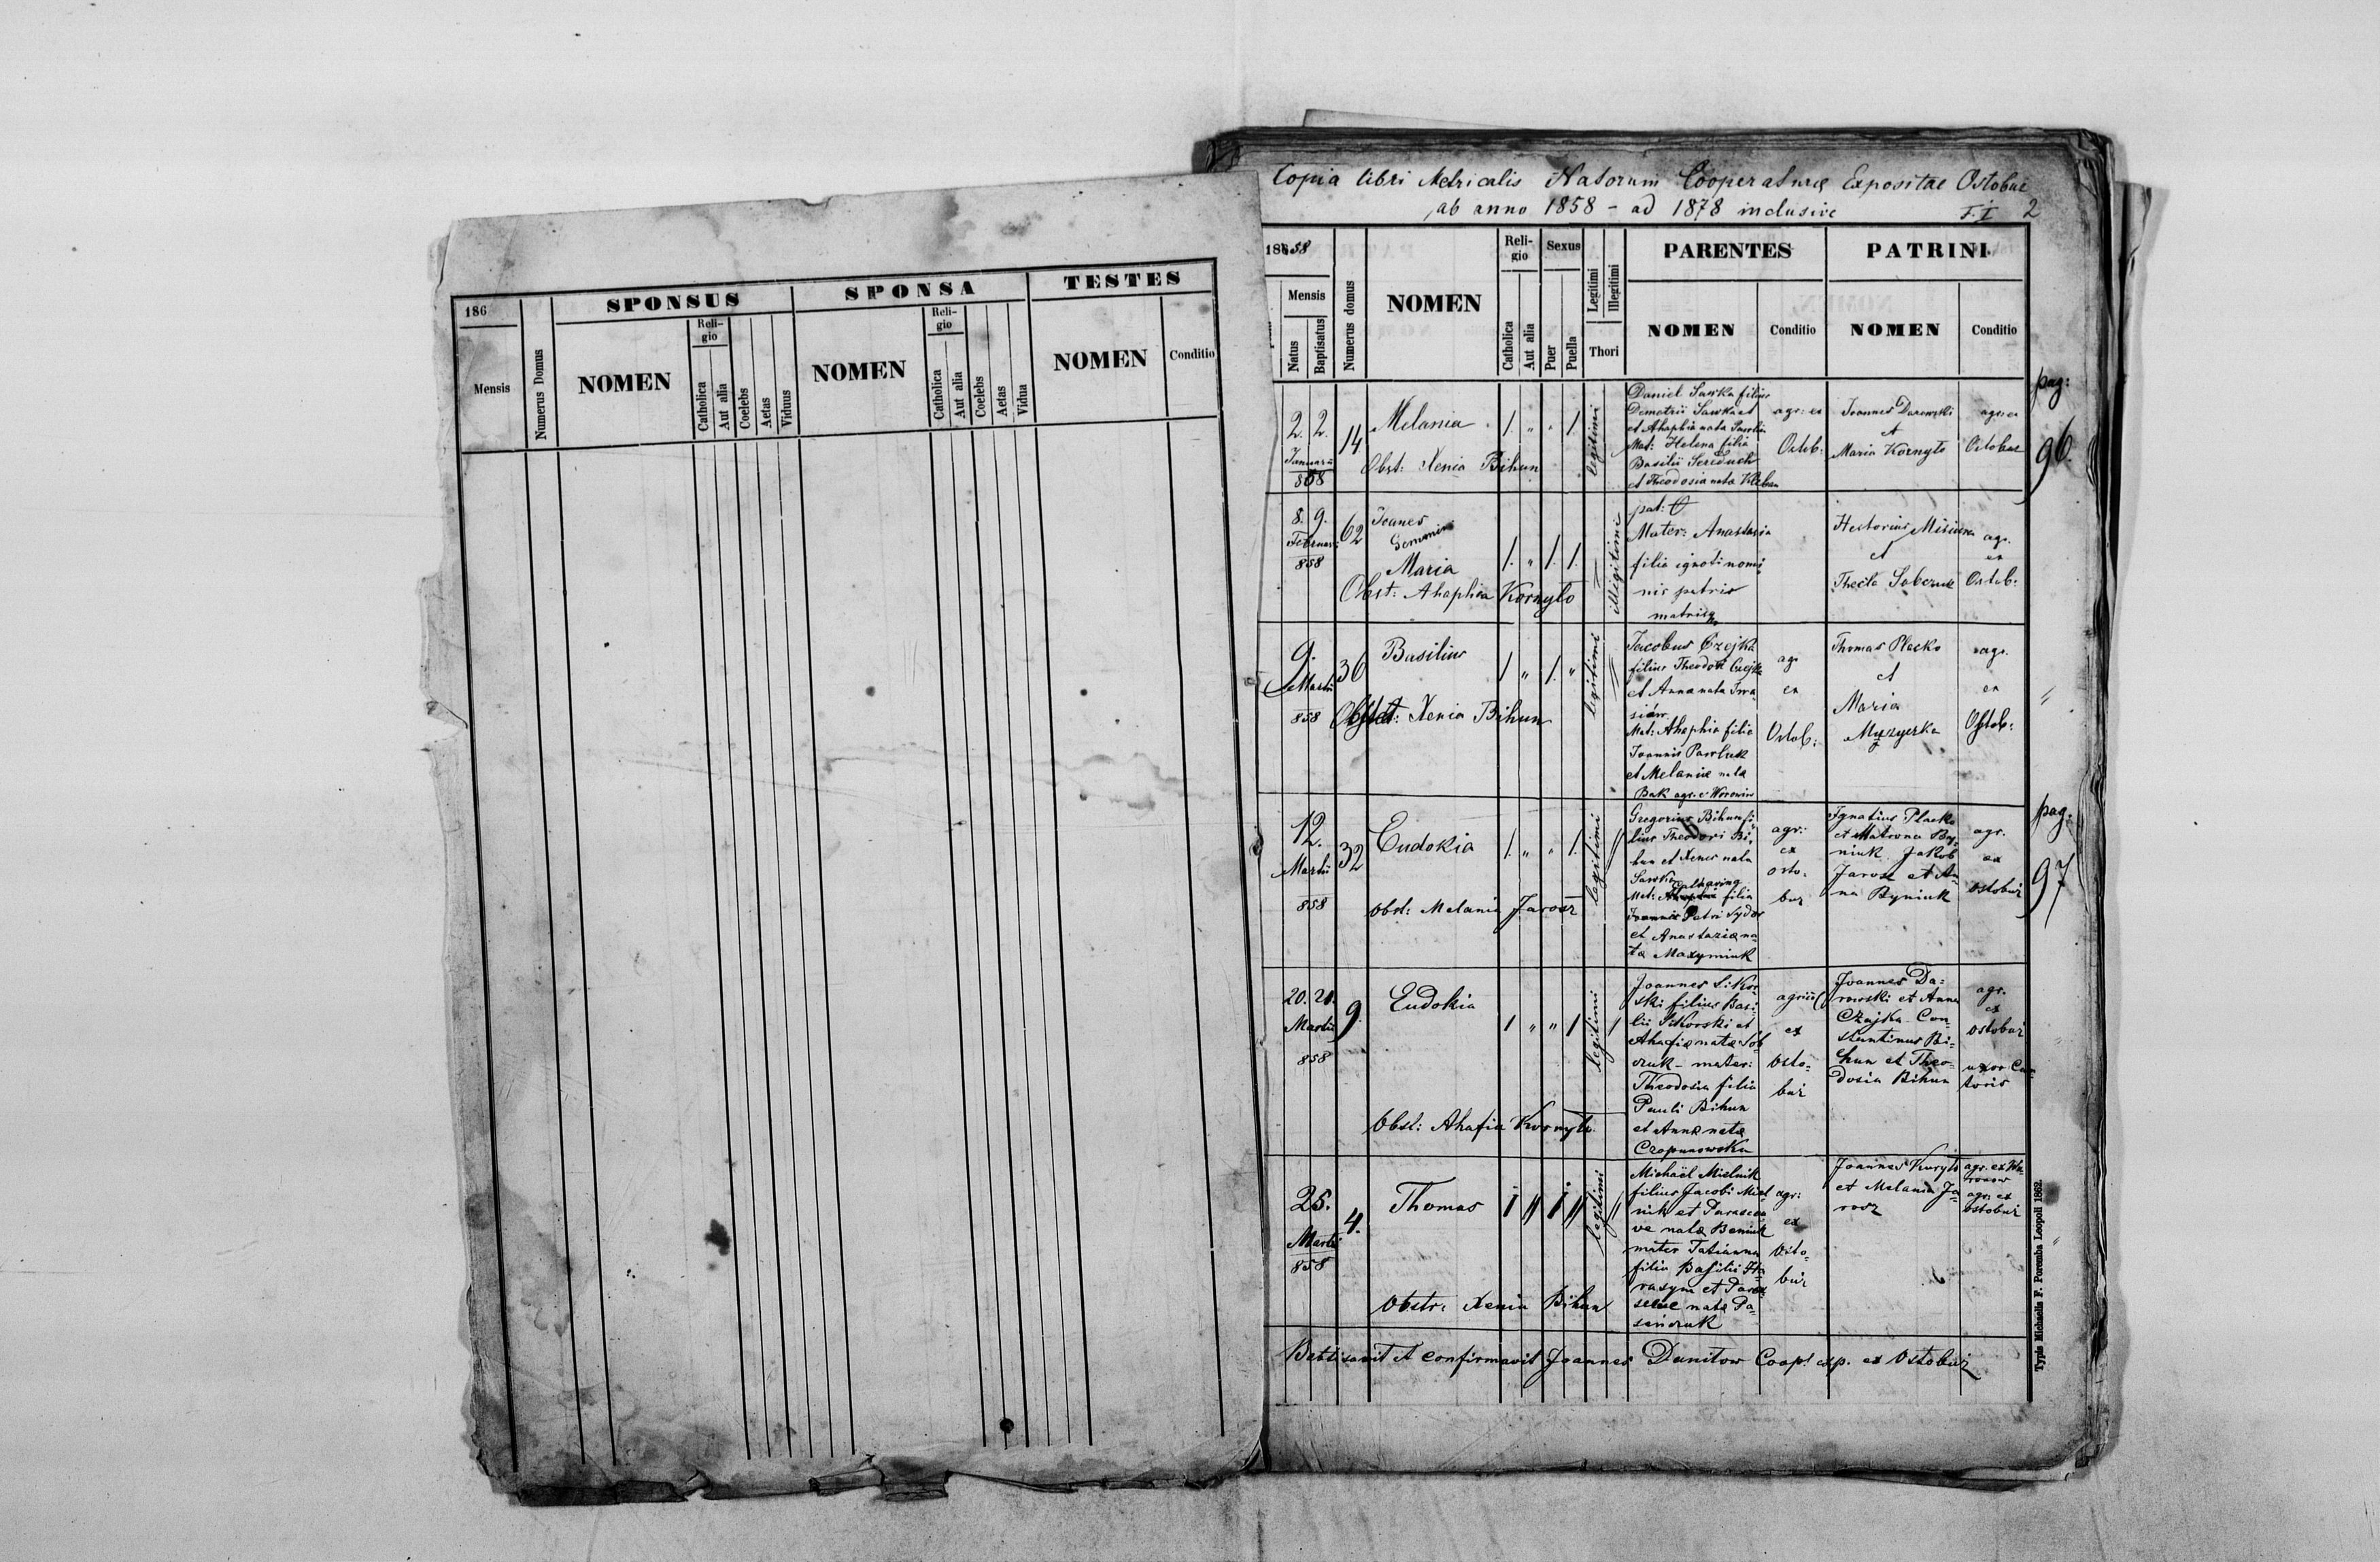 186
Mensis
Numerus Domus
SPONSUS
NOMEN
Reli-
gio
Catholica
Aut alia
Coelebs
Aetas
Viduus
SPONSA
NOMEN
Reli-
gio
Catholica
Aut alia
Coelebs
Aetas
Vidua
TESTES
NOMEN
Conditio
Copia libri Metricalis Natorum Cooperaturæ Expositae Ostobuz
ab anno 1858 - ad 1878 inclusive
F. I 2
18658
Mensis
Natus
Baptisatus
Numerus domus
NOMEN
Reli-
gio
Catholica
Aut alia
Sexus
Puer
Puella
Legitimi
Illegitimi
Thori
PARENTES
NOMEN
Conditio
PATRINI
NOMEN
Conditio
pag:
96.
2. 2.
Januarii
858
14
Melania
1. " " 1.
Obst: Xenia Bihun
legitimi
Daniel Sawka filius
Demetrii Sawka et
et Ahaphia nata
Mat: Helena filia
Basilii Sereduch
et Theodosia nata Kleban
agr: ex
Ostob:
Joannes Darowski
et
Maria Kornyto
agr: ex
Ostobuz
8. 9.
Februar:
858
62
Joanes
Gemmini
Maria
1. " 1. 1.
Obst: Ahaphia Kornyto
illegitimi
pat: O
Mater: Anastasia
filia ignoti nomi
nis patris
matrisq
Misiura
et
Thecla Sobczuk
agr.
ex
Ostob:
9.
Martii
858
36
Basilius
1 " 1. "
Obstet: Xenia Bihun
legitimi
Jacobus Czejka
filius Theodori Czejka
et Anna nata Iwa
siów
Mat: Ahaphia filia
Joannis Pawluk
et Melania nata
Bak agr. e Woronów
agr
ex
Ostob:
Thomas Placko
et
Maria
Muzyczka
agr.
ex
Ostob:
"
12.
Martii
858
32
Eudokia
1. " " 1.
Obst: Melania Jarosz
legitimi
Gregorius Bihun fi
lius Theodori Bi,
hun et Xenia nata
Sawka
Mat: Catharina filia
Joannis Petri Sydor
et Anastazia na
ta Maxymiuk
agr:
ex
Osto-
buz
Ignatius Placko
et Matrona By-
niuk Jakob
Jarosz et An
na Byniuk
agr.
ex
Ostobuż
pag.
97
20. 21.
Martii
858
9.
Eudokia
1 " " 1
Obst: Ahafia Kornyto
legitimi
Joannes Sikor-
ski filius Basi-
lii Sikorski et
Ahafia nata Sob
czuk - mater:
Theodosia filia
Pauli Bihun
et Anna nata
Czopunowska
ex
Osto-
buż
Joannes Da=
rowski et Anna
Czajka Con-
stantinus Bi=
hun et Theo-
dosia Bihun
agr.
ex
Ostobuż
uxor Can-
toris
25.
Martii
858
4.
Thomas
Obstr: Xenia Bihun
legitimi
Michaël Mielnik
filius Jacobi Miel
nik et Parasce
ve nata Beniuk
mater Tatianna
filia Basilii Ha
rasym et Paras
seve nata Pa-
agr:
ex
Osto-
buż
Joannes Kuryło
et Melania Ja-
rosz
agr. ex Wo-
ronów
agr: ex
Ostobuż
"
Batisavit et confirmavit Joannes Danitow Coop. exp. ex Ostobuż
Typis Michaelis F. Poremba Leopoli 1862.